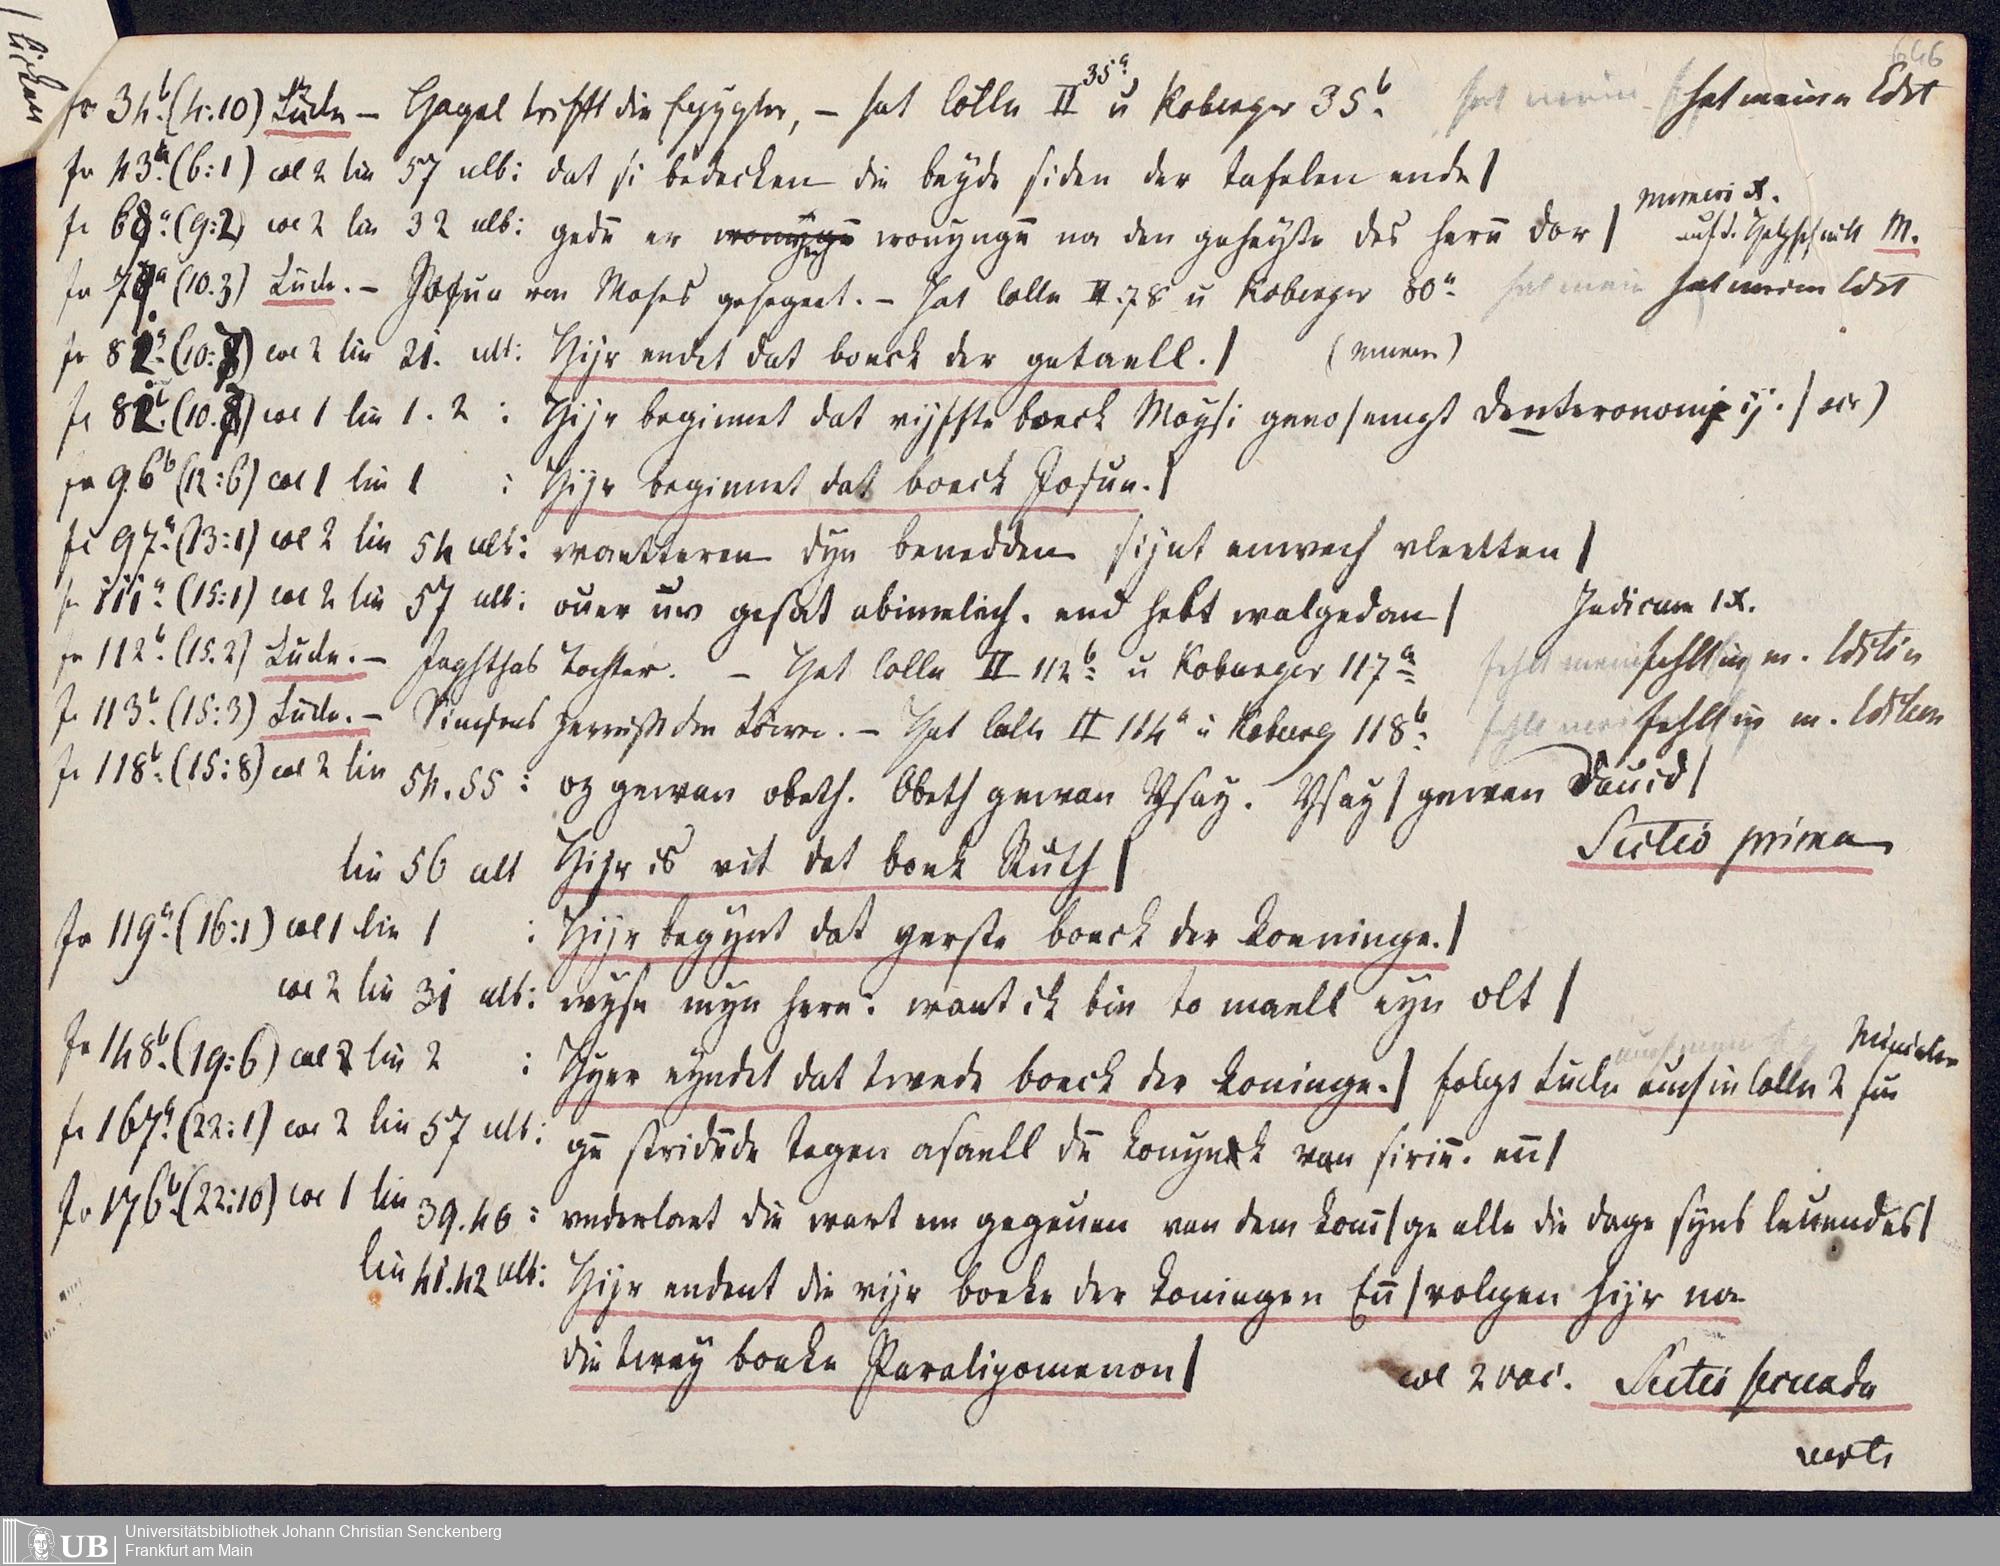 646
fo 34b. (4:10) Lücke — Hagel trifft die Egypter, — hat Cölln II 35a, u Koberger 35b. hat meine Edit
fo 43a. (6:1) col 2 lin 57 ult: dat si bedecken die beyde siden der tafelen ende|
fo 68a. (9:2) col 2 lin 32 ult: gedē er wonȳgē wonyngē na den geheyste des herē dor | Numeri X. auf d. Holzschnitt M.
fo 78a (10.3) Lücke. — Josua von Moses gesegnet. — Hat Cölln II. 78 u Koberger 80a. hat meine Edit
fo 82a. (10:7) col 2 lin 21. ult: Hijr endet dat boeck der getaell. | (numeri)
fo 82b. (10.8) col 1 lin 1. 2 : Hijr beginnet dat vijffte boeck Moysi geno|empt Deuteronomij. |
fo 96b (12:6) col 1 lin 1 : Hijr beginnet dat boeck Josue. |
fo 97a. (13:1) col 2 lin 54 ult: waetteren dyn benedden sijnt enwech vleetten |
fo 111a. (15:1) col 2 lin 57 ult: ouer uw gesat abimelech. end hebt walgedan | Judicum IX.
fo 112b. (15.2) Lücke. — Jephthas Tochter. — Hat Cölln II 112b. u Koburger 117a fehlt in m. Edition
fo 113b. (15:3) Lücke. — Simson zerreißt den Löwen. — Hat Cölln II 114a u Koburg 118b. fehlt in m. Edition
fo 118b. (15:8) col 2 lin 54. 55 : oz gewan obeth. Obeth gewan Ysay. Ysay | gewan Dauid |
lin 56 ult Hijr is vit dat boek Ruth | Sectio prima
fo 119a. (16:1) col 1 lin 1 : Hijr begynt dat yerste boeck der koeninge. |
col 2 lin 31 ult: wyse myn here: want ick bin to maell eyn olt |
fo 148b. (19:6) col 2 lin 2 : Hyer eyndet dat twede boeck der koninge. | folgt Lücke auch in Cölln 2 für
fo 167a. (22:1) col 2 lin 57 ult: gē stridēde tegen asaell dē konynck van siriē. en̄ |
fo 176b. (22:10) col 1 lin 39. 40 : vnderlaet die wart em gegeuen van dem koni|ge alle die dage syns leuendes |
lin 41. 42 ult: Hijr endent die vijr boeke der koningen En̄ | volgen hijr na
die twey boeke Paralipomenon | col 2 vac. Sectio secunda
verte
Universitätsbibliothek Johann Christian Senckenberg
Frankfurt am Main
UB